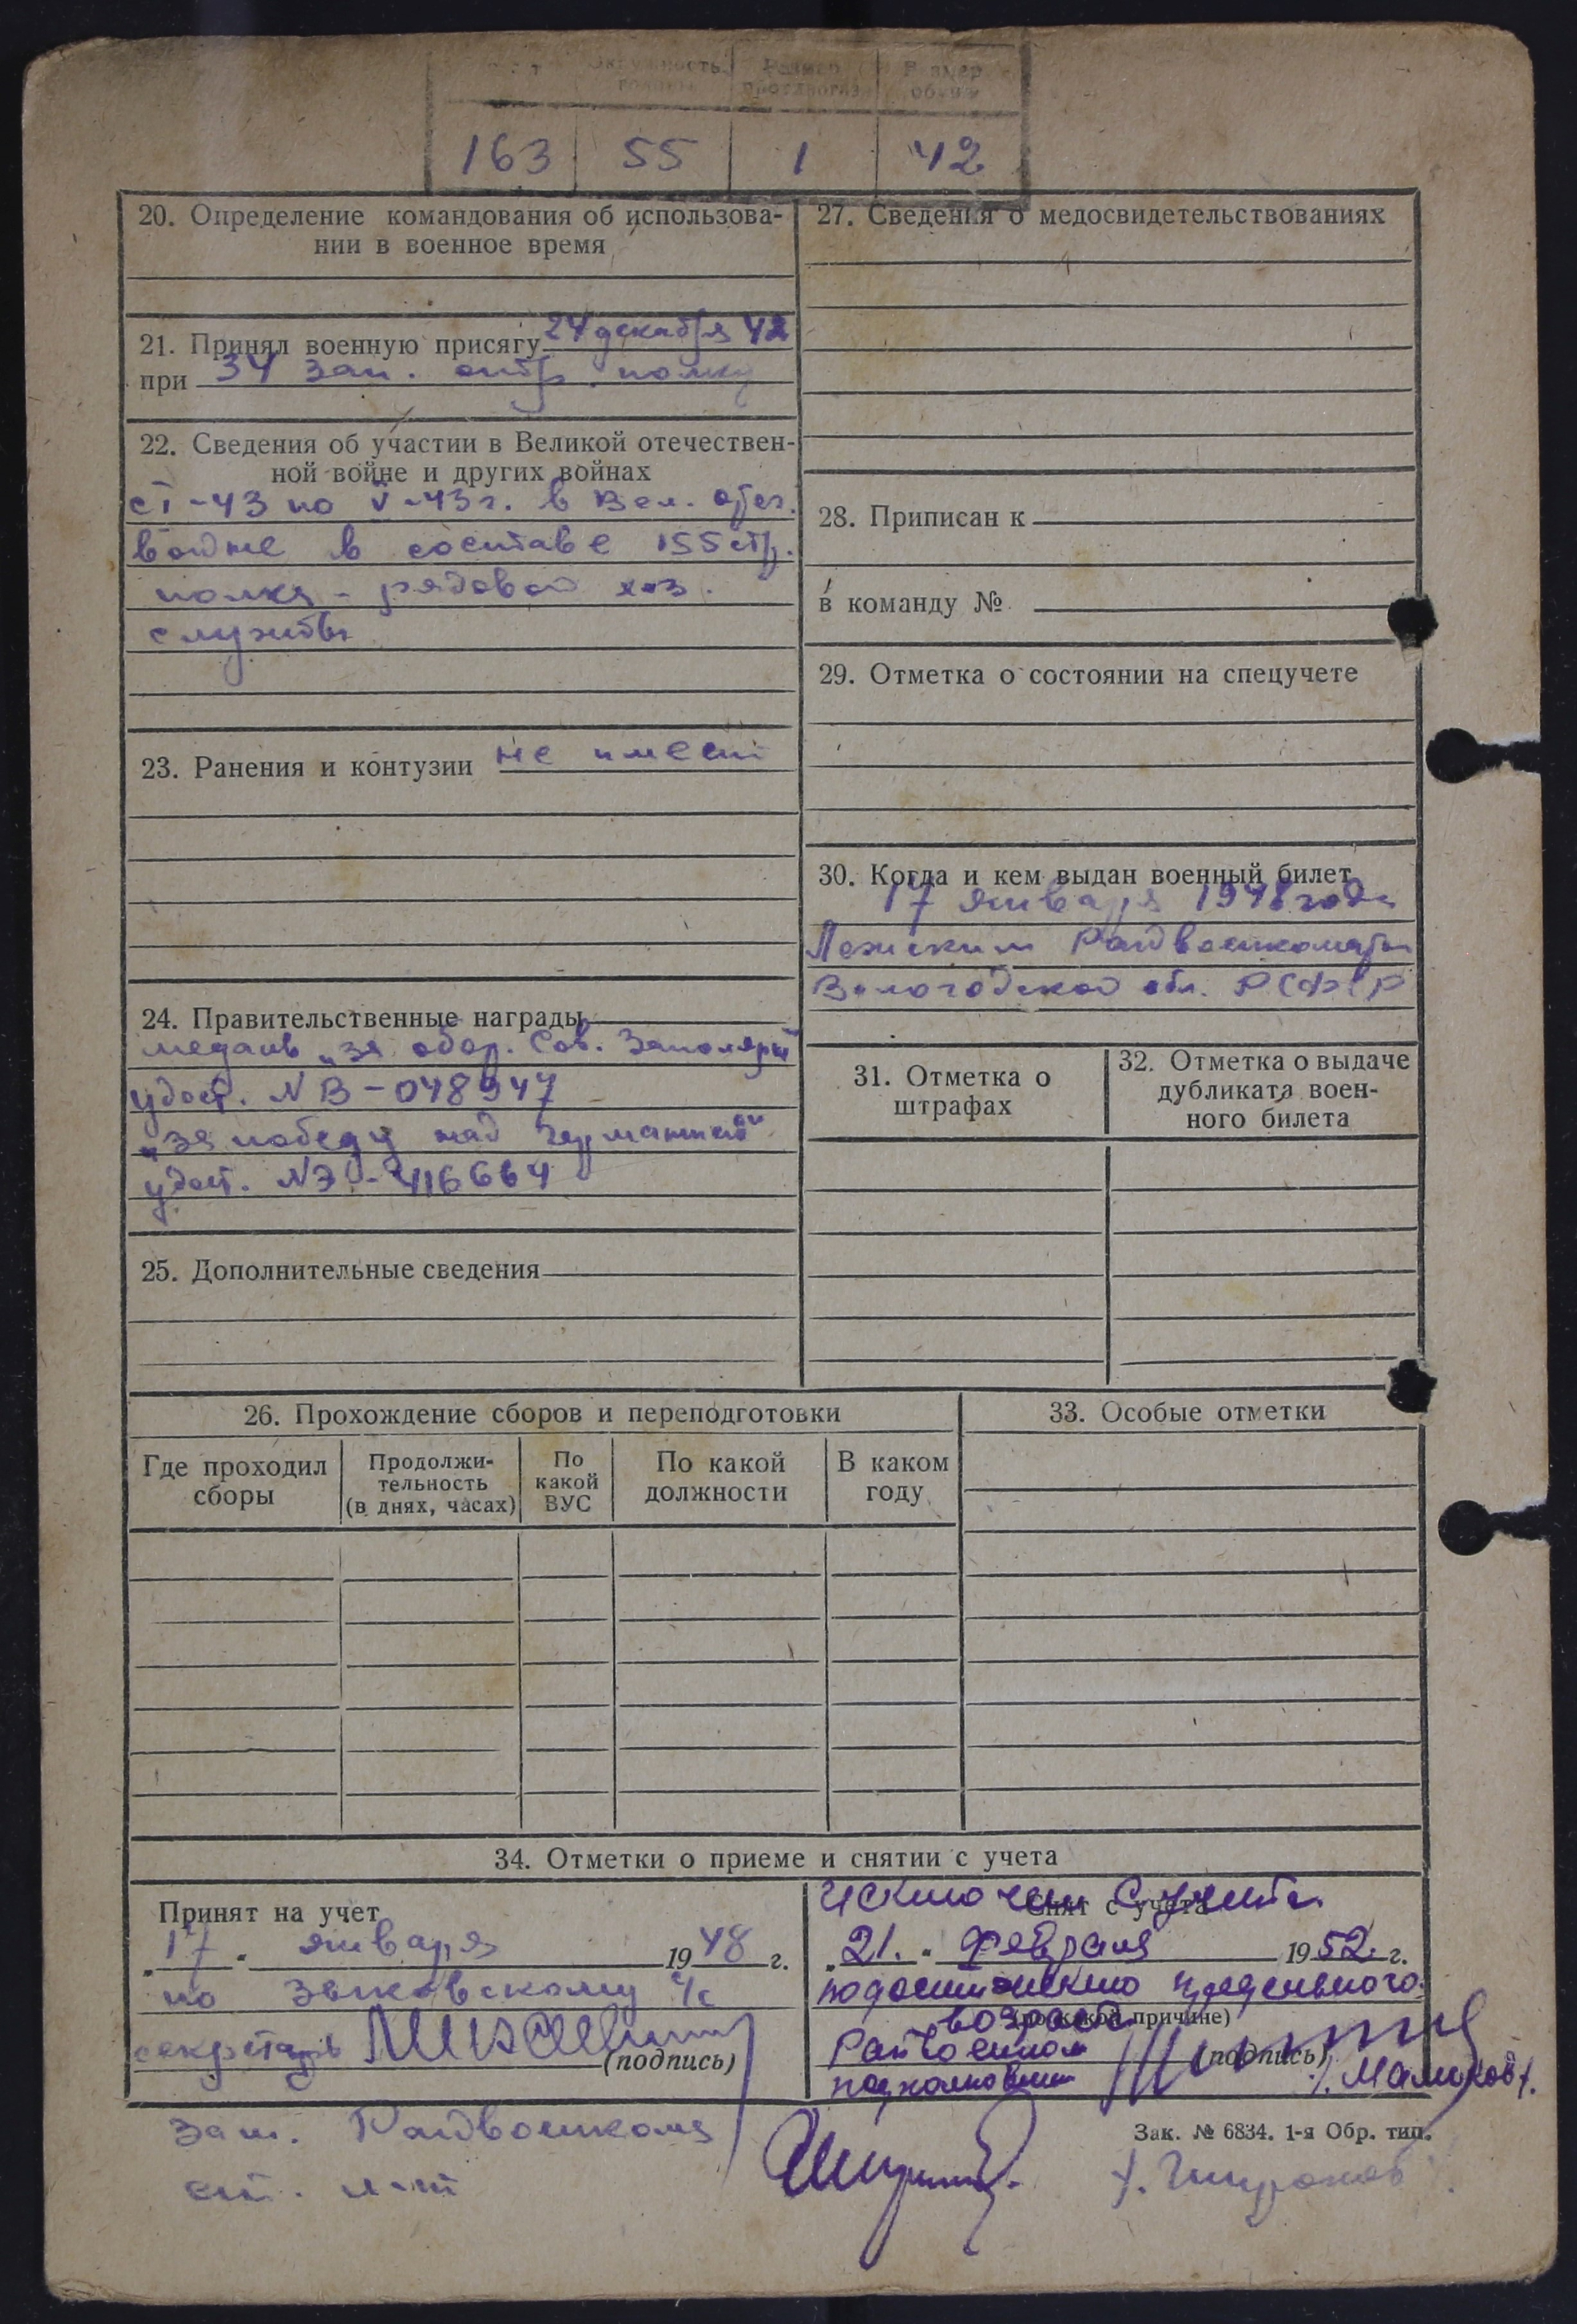 Окружность головы
Размер противогаза
Размер обуви
163 55 1 42
20. Определение командования об использова-
нии в военное время
21. Принял военную присягу 24 декабря 42
при 34 зап. стр. полку
22. Сведения об участии в Великой отечествен-
ной войне и других войнах
с I-43 по V-43 г. в Вел. отеч.
войне в составе 155 стр.
полка - рядовой хоз.
службы
23. Ранения и контузии не имеет
24. Правительственные награды
медаль „за обор. Сов. Заполярья"
удост. № В-048947
„за победу над Германией"
удост. № Э-416664
25. Дополнительные сведения
27. Сведения о медосвидетельствованиях
28. Приписан к
в команду №
29. Отметка о состоянии на спецучете
30. Когда и кем выдан военный билет
17 января 1948 года
Лежским Райвоенкоматом
Вологодской обл. РСФСР
31. Отметка о
штрафах
32. Отметка о выдаче
дубликата воен-
ного билета
26. Прохождение сборов и переподготовки
Где проходил
сборы
Продолжи-
тельность
(в днях, часах)
По
какой
ВУС
По какой
должности
В каком
году
33. Особые отметки
34. Отметки о приеме и снятии с учета
Принят на учет
„17" января 1948 г.
по с/с
секретарь
(подпись)
Зам. Райвоенкома
ст. л-т
Исключен с учета
Снят с учета
„21." февраля 1952 г.
по достижению предельного
возраста
(по какой причине)
Райвоенком
подполковник
(подпись)
/Маликов/.
Зак. № 6834. 1-я Обр. тип.